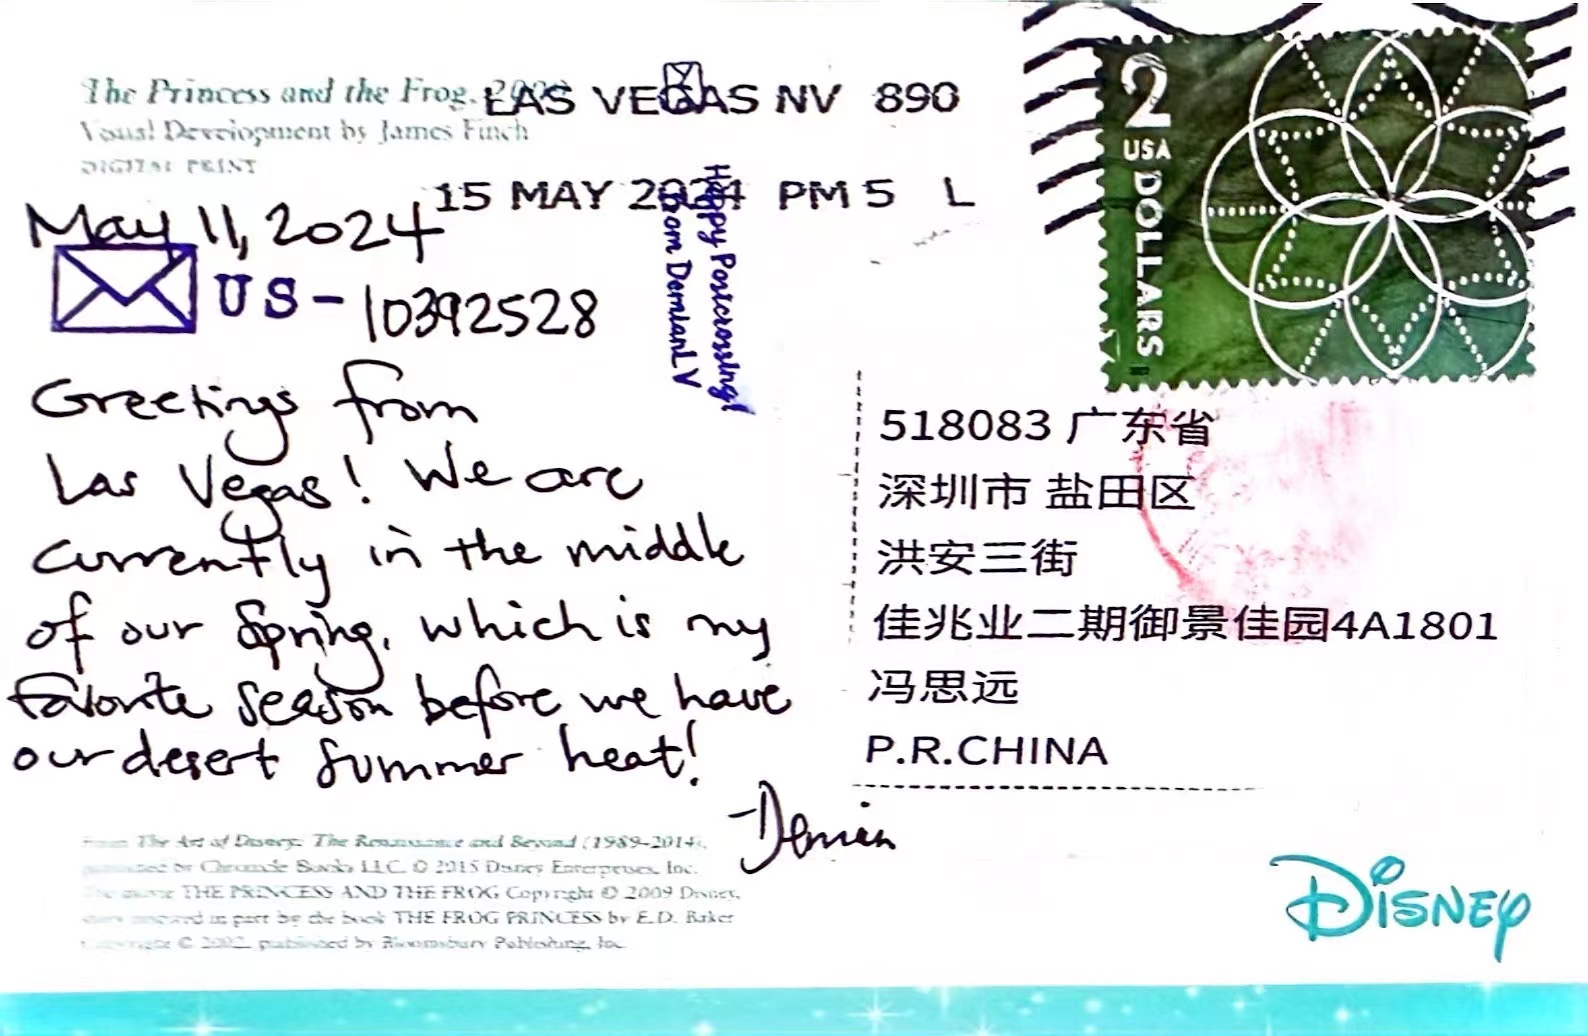 The Princess and the Frog,
Visual Development by James Finch
DIGITAL PRINT
LAS VEGAS NV 890
15 MAY 2024 PM 5 L
2
USA
DOLLARS
May 11, 2024
US-10392528
Happy Postcrossing!
from DemianLV
Greetings from
Las Vegas! We are
currently in the middle
of our Spring, which is my
favorite season before we have
our desert summer heat!
-Demian
518083 广东省
深圳市 盐田区
洪安三街
佳兆业二期御景佳园4A1801
冯思远
P.R.CHINA
From The Art of Disney: The Renaissance and Beyond (1989-2014),
published by Chronicle Books LLC. © 2015 Disney Enterprises, Inc.
The movie THE PRINCESS AND THE FROG Copyright © 2009 Disney,
story inspired in part by the book THE FROG PRINCESS by E.D. Baker
Copyright © 2002, published by Bloomsbury Publishing, Inc.
Disney